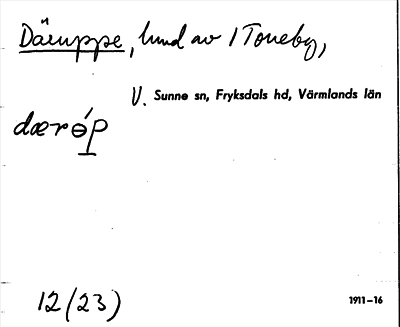 Däruppe, lund av 1 Toneby,
V. Sunne sn, Fryksdals hd, Värmlands län
dærɵ́p
12 (23)
1911–16